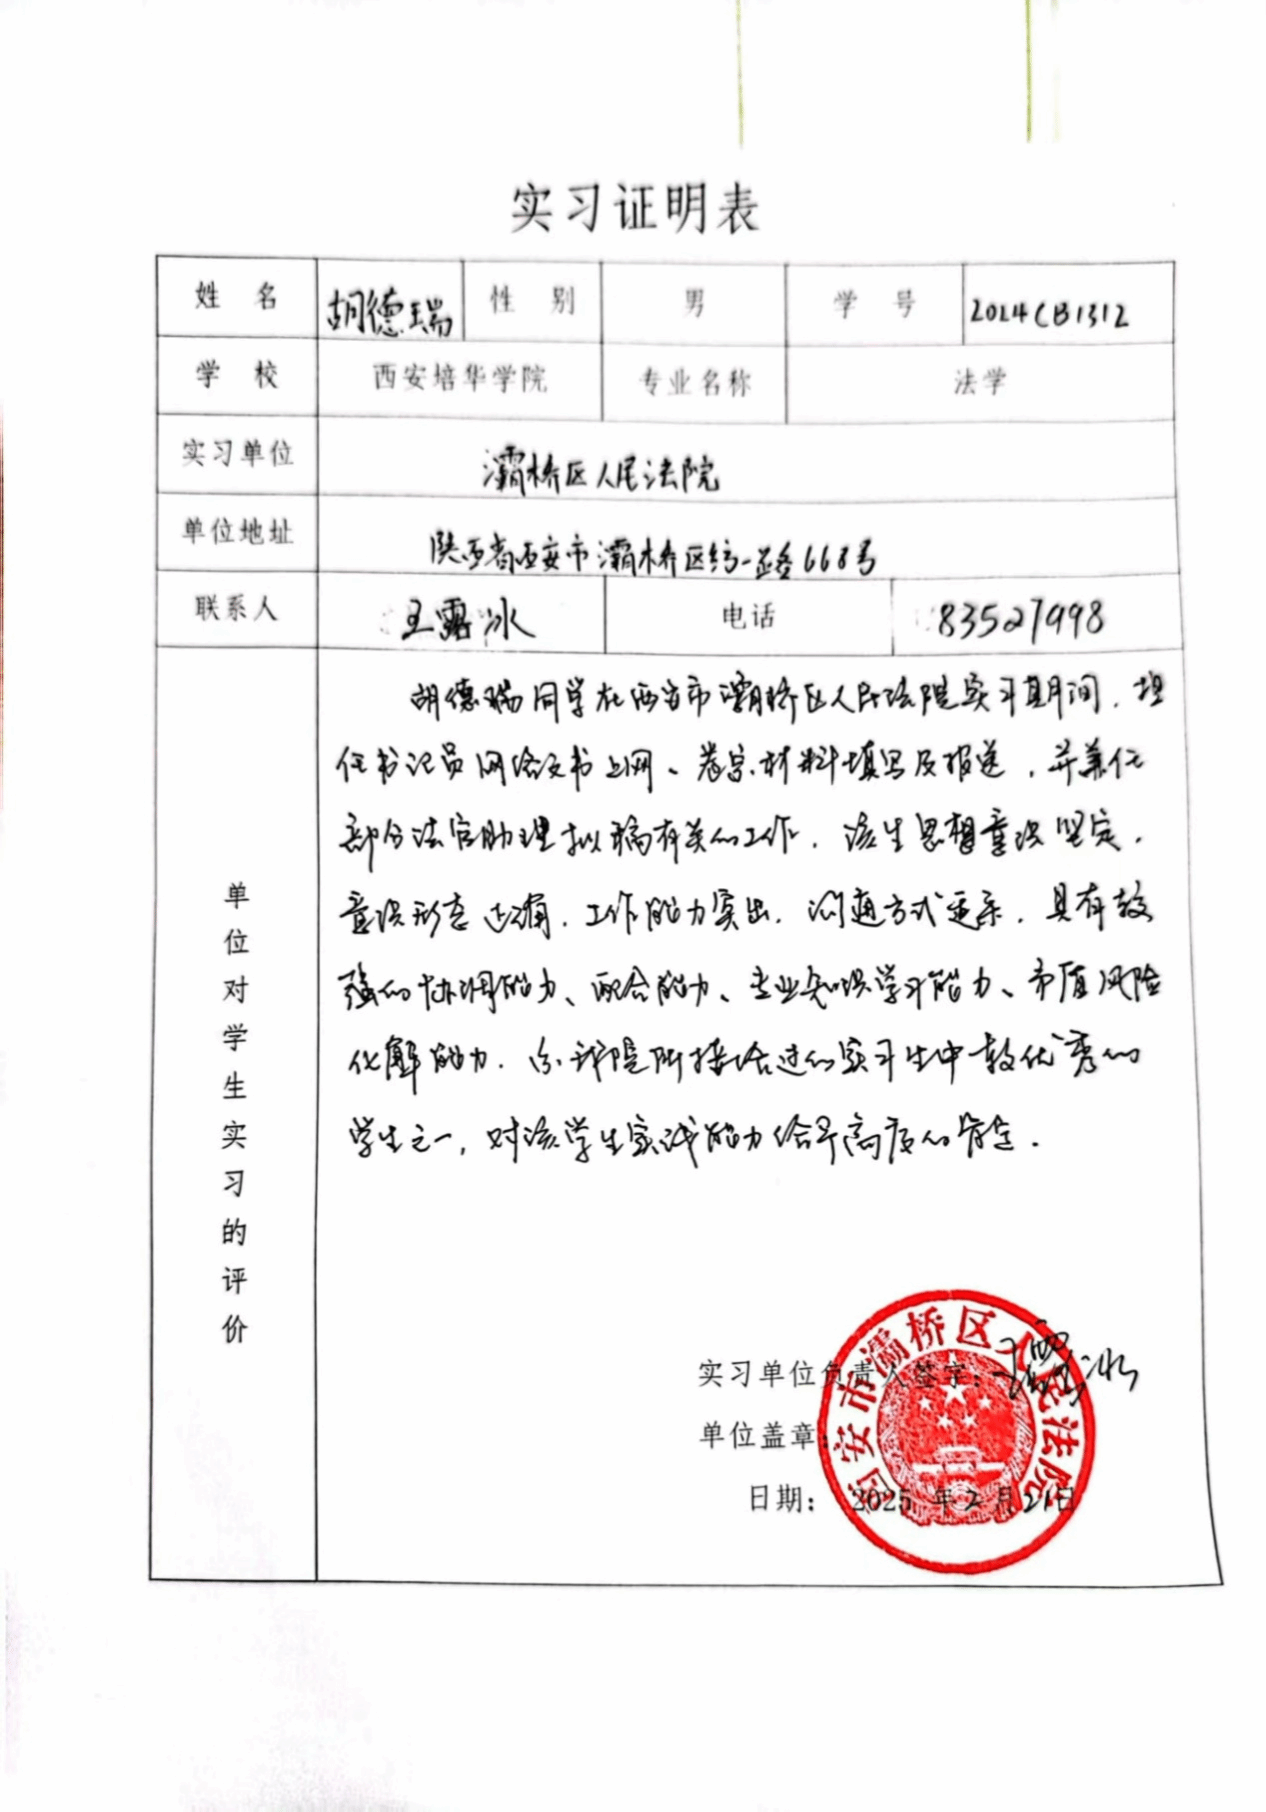 实习证明表
姓 名 胡德瑞 性 别 男 学 号 2024CB1312
学 校 西安培华学院 专业名称 法学
实习单位 灞桥区人民法院
单位地址 陕西省西安市灞桥区纺一路668号
联系人 王露冰 电话 83527998
单位对学生实习的评价
胡德瑞同学在西安市灞桥区人民法院实习期间，担
任书记员网络文书上网、卷宗材料填写及报送，并兼任
部分法官助理拟稿有关的工作．该生思想意识坚定．
意识形态正确．工作能力突出．沟通方式 ．具有较
强的协调能力、配合能力、专业知识学习能力、矛盾风险
化解能力． 我院所接洽过的实习生中较优秀的
学生之一，对该学生实践能力给予高度的肯定．
实习单位负责人签字：王露冰
单位盖章：
日期： 2025 年 2 月 21 日
西安市灞桥区人民法院